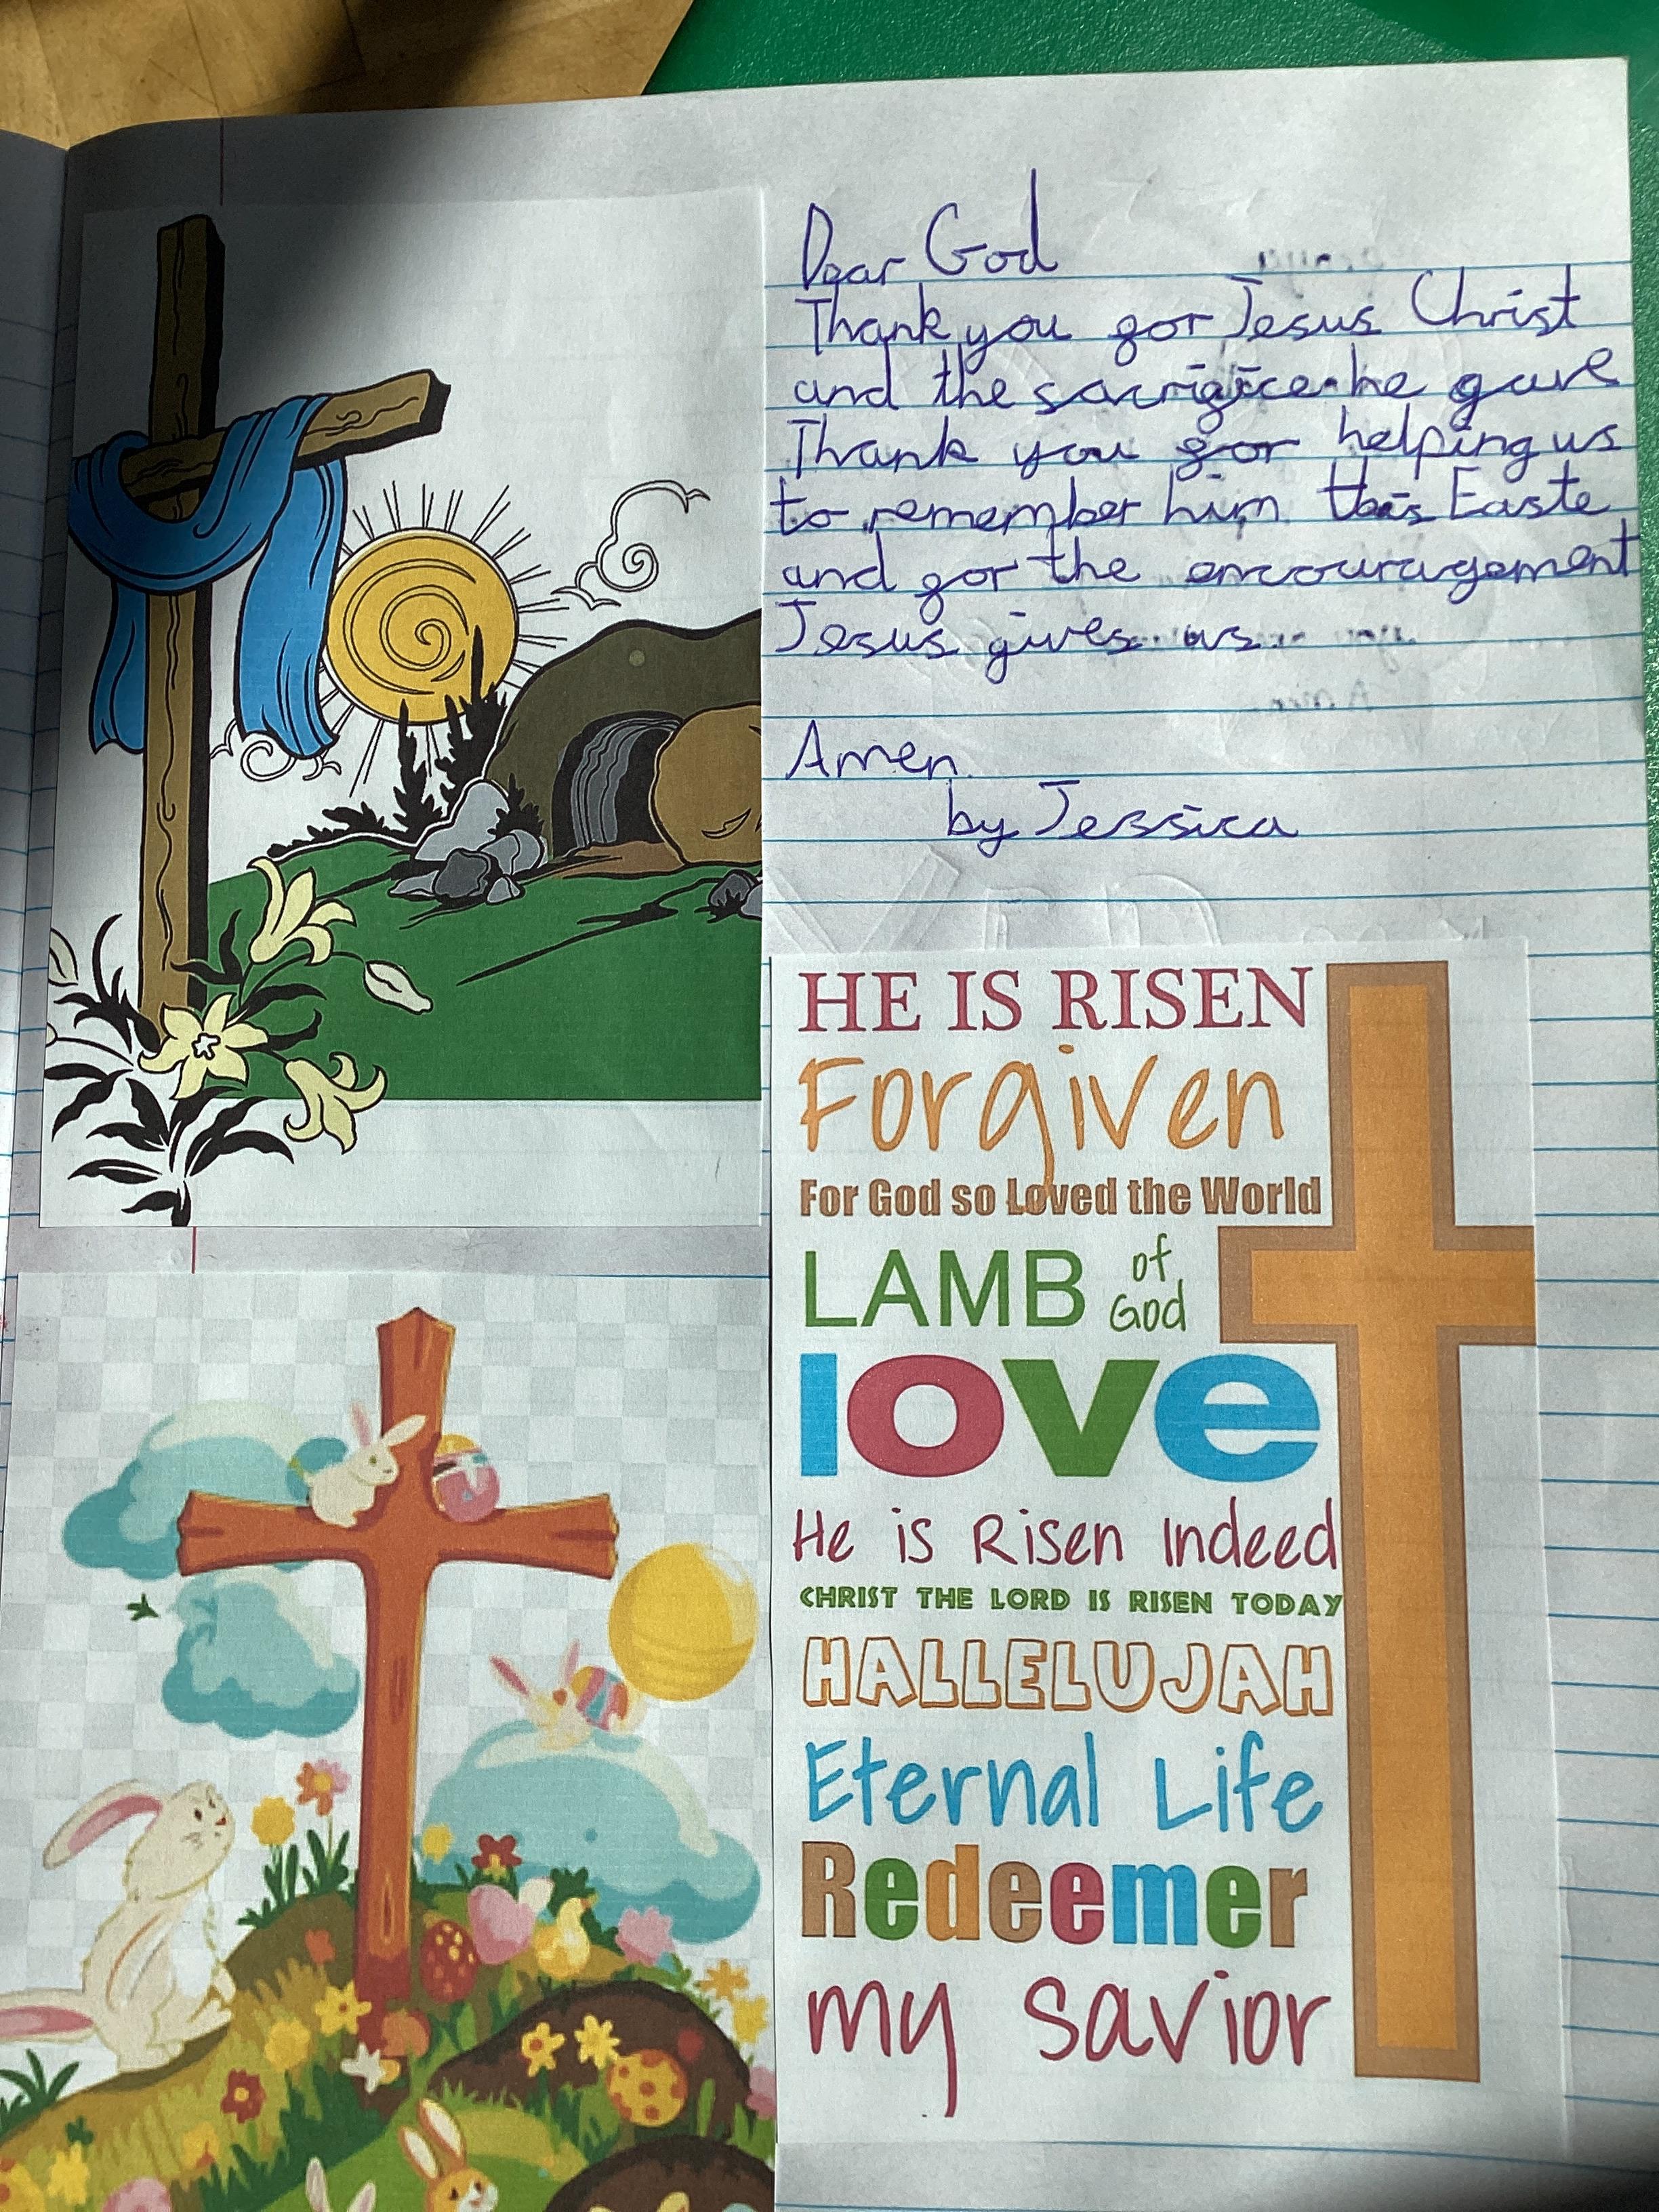 Dear God
Thank you for Jesus Christ
and the sacrifice he gave
Thank you for helping us
to remember him this Easte
and for the encouragement
Jesus gives us.
Amen
by Jessica
HE IS RISEN
Forgiven
For God so Loved the World
LAMB of God
love
He is Risen Indeed
CHRIST THE LORD IS RISEN TODAY
HALLELUJAH
Eternal Life
Redeemer
my savior